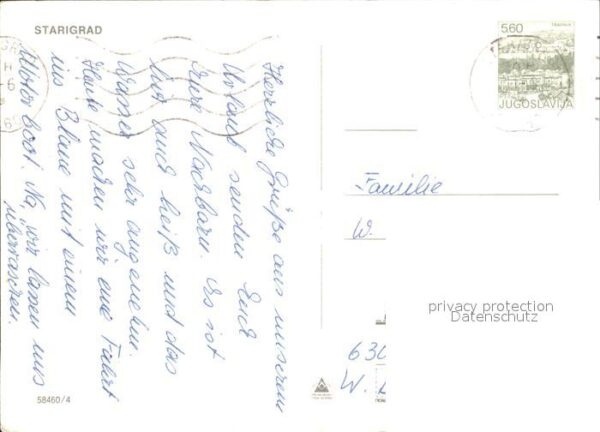 STARIGRAD
Herrliche Grüße aus unserem
Urlaub senden Euch
Eure Nachbarn. Es ist
hier auch heiß und das
Wasser sehr angenehm.
Heute machen wir eine Fahrt
ins Blaue mit einem
Motorboot. Na, wir lassen uns
überraschen.
58460/4
5,60
JUGOSLAVIJA
Familie
W.
630
W.
privacy protection
Datenschutz